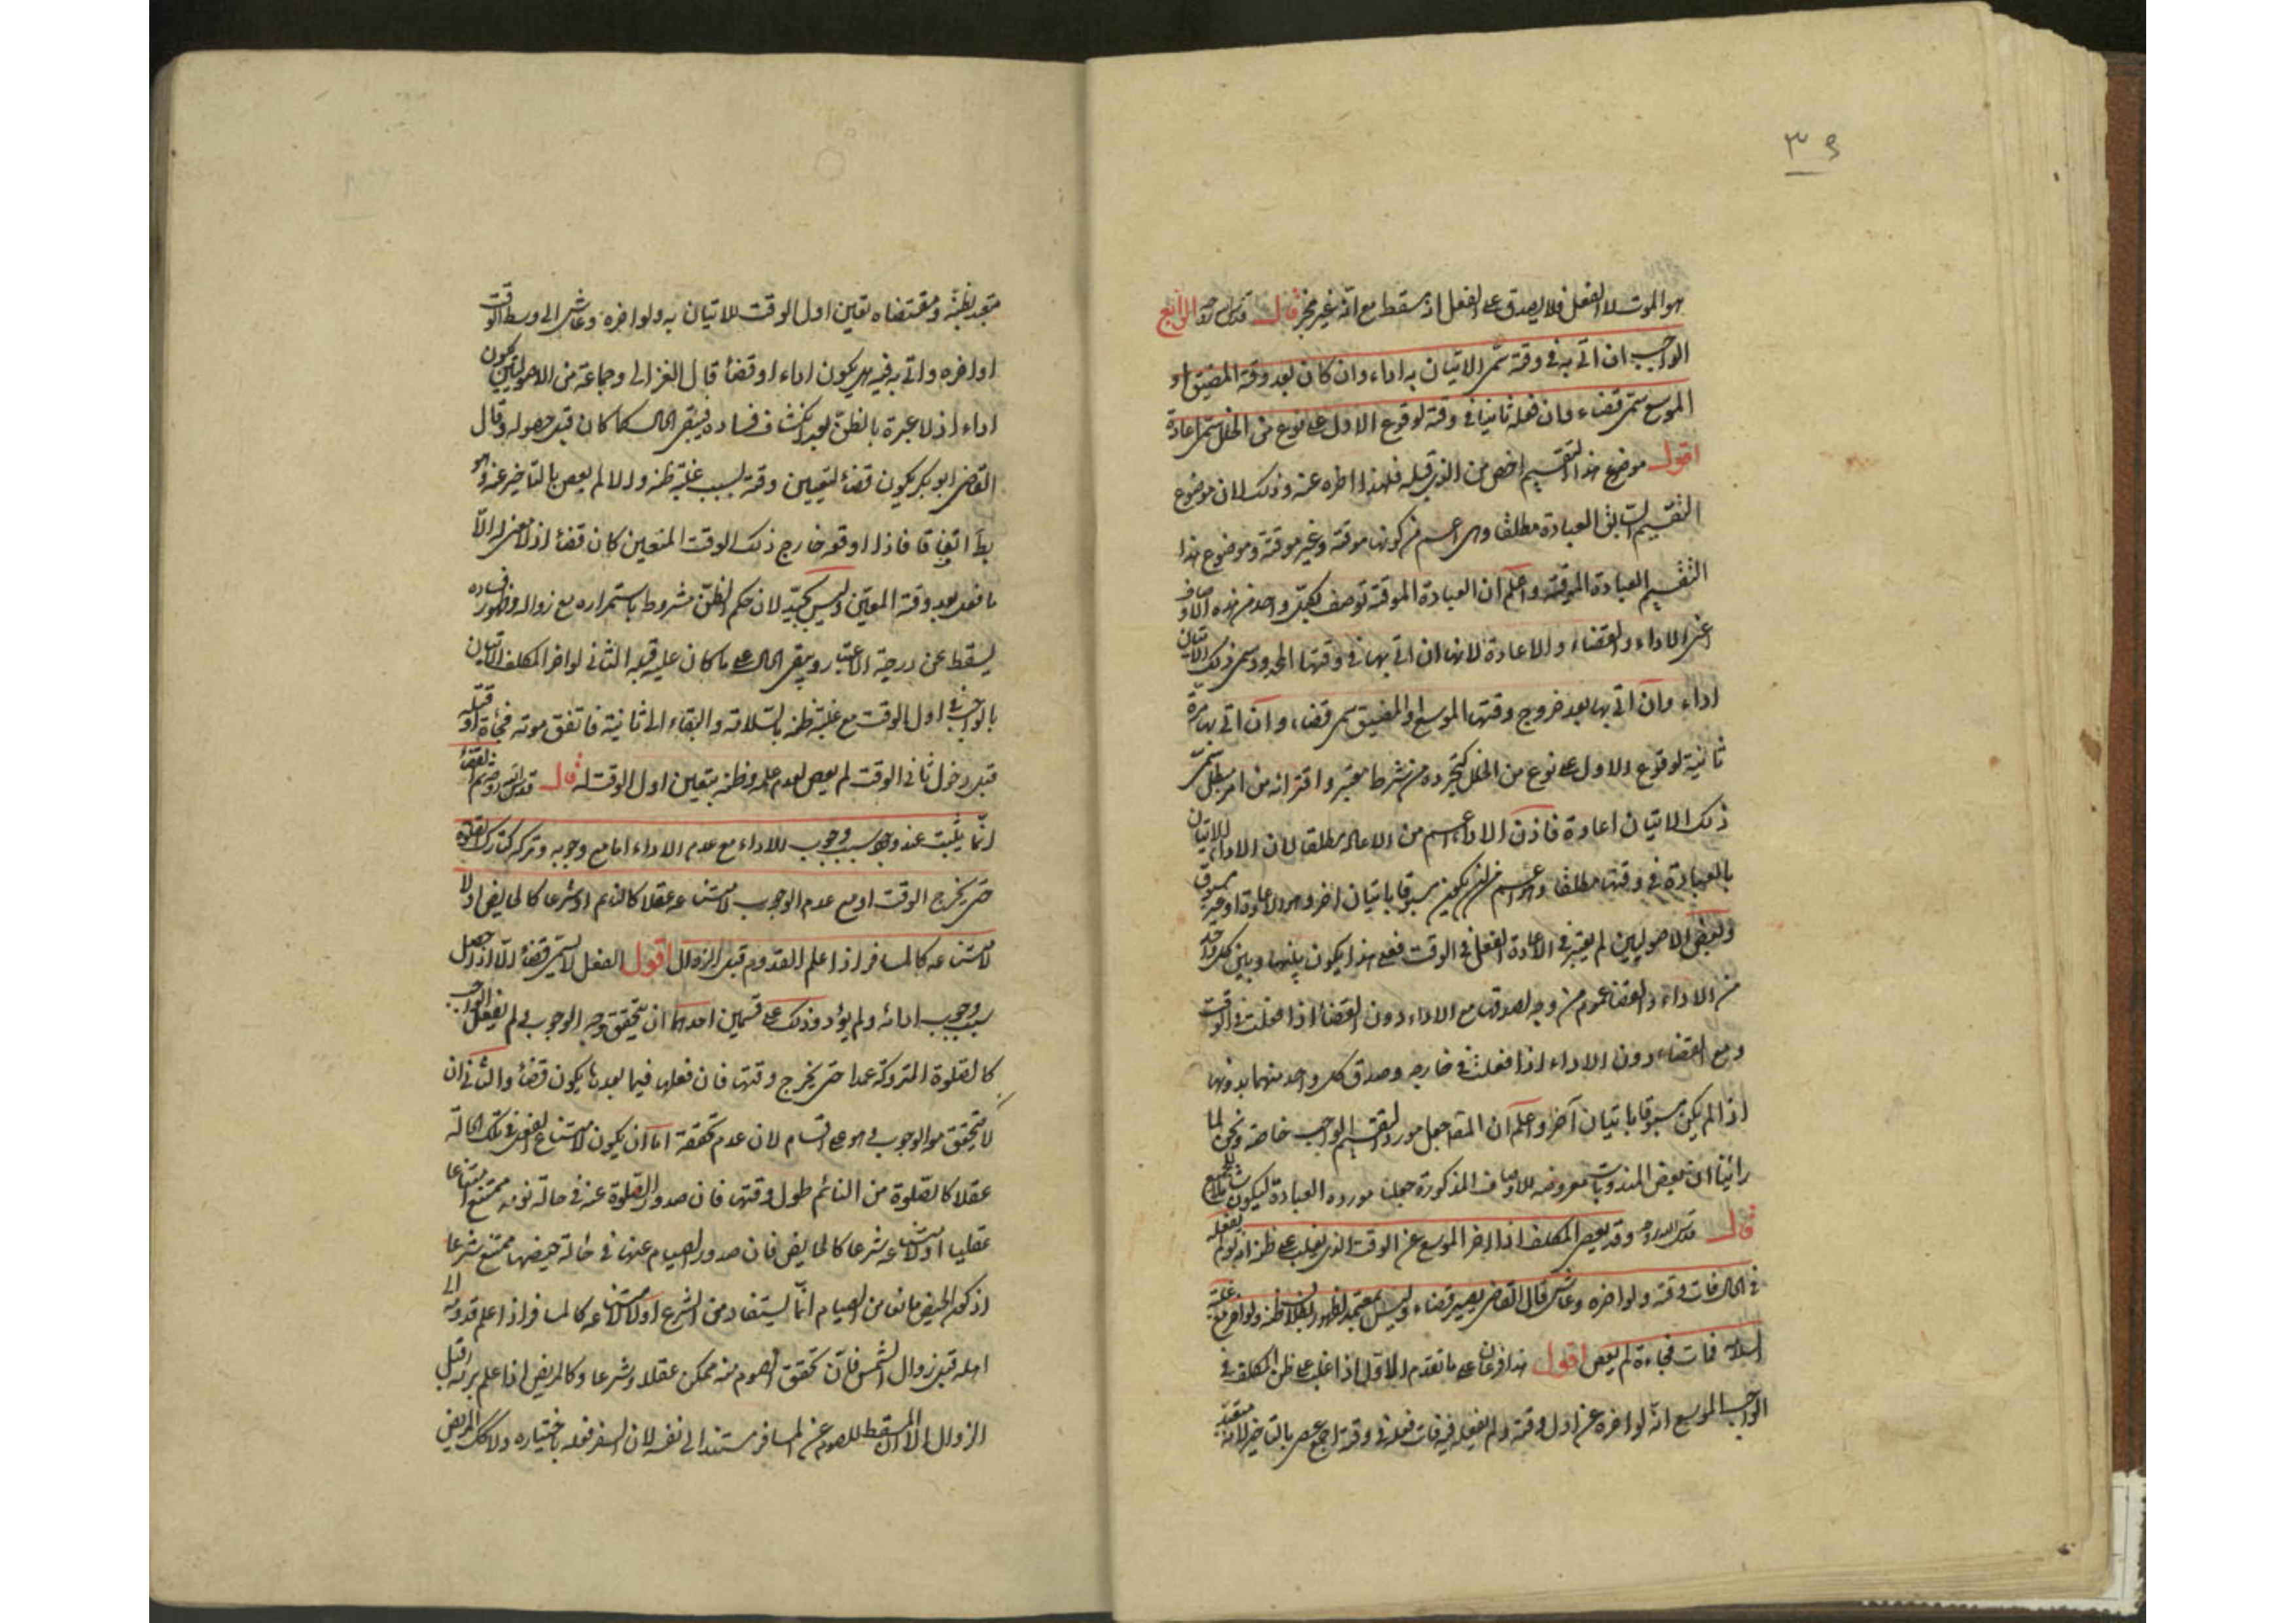 ۳۹
هو الموت لا الفعل فلا يصدق على الفعل اذ سقط مع انه غير مجز قال قدس الرابع
الواجب ان اتى به في وقته سمى الاتيان به اداء وان كان بعد وقته المضيق او
الموسع سمى قضاء وان فعله ثانيا في وقته لوقوع الاول على نوع من الخلل سمى اعادة
اقول موضوع هذا التقسيم اخص من الذي قبله فلهذا اخره عنه وذلك لان موضوع
التقسيم السابق العبادة مطلقا وهى اعم من كونها موقتة وغير موقتة وموضوع هذا
التقسيم العبادة الموقتة واعلم ان العبادة الموقتة توصف بكل واحد من هذه الاوصاف
اعنى الاداء والقضاء والاعادة لانها ان اتى بها في وقتها المحدود سمى ذلك الاتيان
اداء وان اتى بها بعد خروج وقتها الموسع او المضيق سمى قضاء وان اتى بها مرة
ثانية لوقوع الاول على نوع من الخلل كتجرده من شرط معتبر واقترانه من امر مبطل سمى
ذلك الاتيان اعادة فاذن الاداء اعم من الاعادة مطلقا لان الاداء الاتيان
بالعبادة في وقتها مطلقا وهو اعم من ان يكون مسبوقا باتيان اخر وهو الاعادة او غير مسبوق
وبعض الاصوليين لم يعتبر في الاعادة الفعل في الوقت فعلى هذا يكون بينها وبين كل واحد
من الاداء والقضاء عموم من وجه لصدقها مع الاداء دون القضاء اذا فعلت في الوقت
ومع القضاء دون الاداء اذا فعلت في خارجه وصدق كل واحد منهما بدونها
اذا لم يكن مسبوقا باتيان آخر واعلم ان المص جعل مورد التقسيم الواجب خاصة ونحن لما
راينا ان بعض المندوبات معروضه للاوصاف المذكورة جعلنا مورده العبادة ليكون شاملا للجميع
قال قدس الله روحه وقد يعصى المكلف اذا اخر الموسع عن الوقت الذي يغلب على ظنه انه لو لم يفعله
في الحال فات وقته ولو اخره وعاش قال القاضى يصير قضاء وليس بمعتمد لظهور بطلان ظنه ولو اخر مع غلبة
السلامة فمات فجاءة لم يعص اقول هذا فرعان على ما تقدم الاول اذا غلب على ظن المكلف في
الواجب الموسع انه لو اخره عن اول وقته ولم يفعله فيه فات فعله في وقته اجمع عصى بالتاخير لانه متعبد
متعبد بظنه ومقتضاه تعين اول الوقت للاتيان به ولو اخره وعاش الى وسط الوقت
او اخره واتى به فيه هل يكون اداء او قضاء قال الغزالى وجماعة من الاصوليين يكون
اداء اذ لا عبرة بالظن بعد انكشاف فساده فيبقى الحال كما كان قبل حصوله وقال
القاضى ابو بكر يكون قضاء لتعيين وقته بسبب غلبة ظنه والا لم يعص بالتاخير عنه وهو
بط اتفاقا فاذا اوقعه خارج ذلك الوقت المتعين كان قضاء اذ لا معنى له الا
ما فعل بعد وقته المعين وليس بجيد لان حكم الظن مشروط باستمراره مع زواله وظهور فساده
يسقط عن درجة الاعتبار ويبقى الحال على ما كان عليه قبله الثانى لو اخر المكلف الاتيان
بالواجب في اول الوقت مع غلبة ظنه بالسلامة والبقاء الى ثانيه فاتفق موته فجاءة او قتله
قبل دخول ثانى الوقت لم يعص لعدم علمه وظنه بتعين اول الوقت له قال قدس الله روحه ثم القضاء
انما يثبت عند وجود سبب وجوب الاداء مع عدم الاداء اما مع وجوبه وتركه كتارك الصلوة
حتى يخرج الوقت او مع عدم الوجوب لامتناعه عقلا كالنائم او شرعا كالحايض او لا
لامتناعه كالمسافر اذا علم القدوم قبل الزوال اقول الفعل لا يسمى قضاء الا اذا حصل
سبب وجوب ادائه ولم يؤد وذلك على قسمين احدهما ان يتحقق وجه الوجوب فلم يفعل الواجب
كالصلوة المتروكة عمدا حتى يخرج وقتها فان فعلها فيما بعد يكون قضاء والثانى ان
لا يتحقق الوجوب وهو على اقسام لان عدم تحققه اما ان يكون لامتناع الفعل في تلك الحالة
عقلا كالصلوة من النائم طول وقتها فان صدور الصلوة عنه في حالة نومه ممتنع امتناعا
عقليا او لامتناعه شرعا كالحايض فان صدور الصيام عنها في حالة حيضها ممتنع شرعا
اذ كون الحيض مانعا من الصيام انما يستفاد من الشرع او لا لامتناعه كالمسافر اذا علم قدومه الى
اهله قبل زوال الشمس فان تحقق الصوم منه ممكن عقلا وشرعا وكالمريض اذا علم برئه قبل
الزوال الا ان المسقط للصوم عن المسافر مستند الى نفسه لان السفر فعله باختياره ولا كذلك المريض